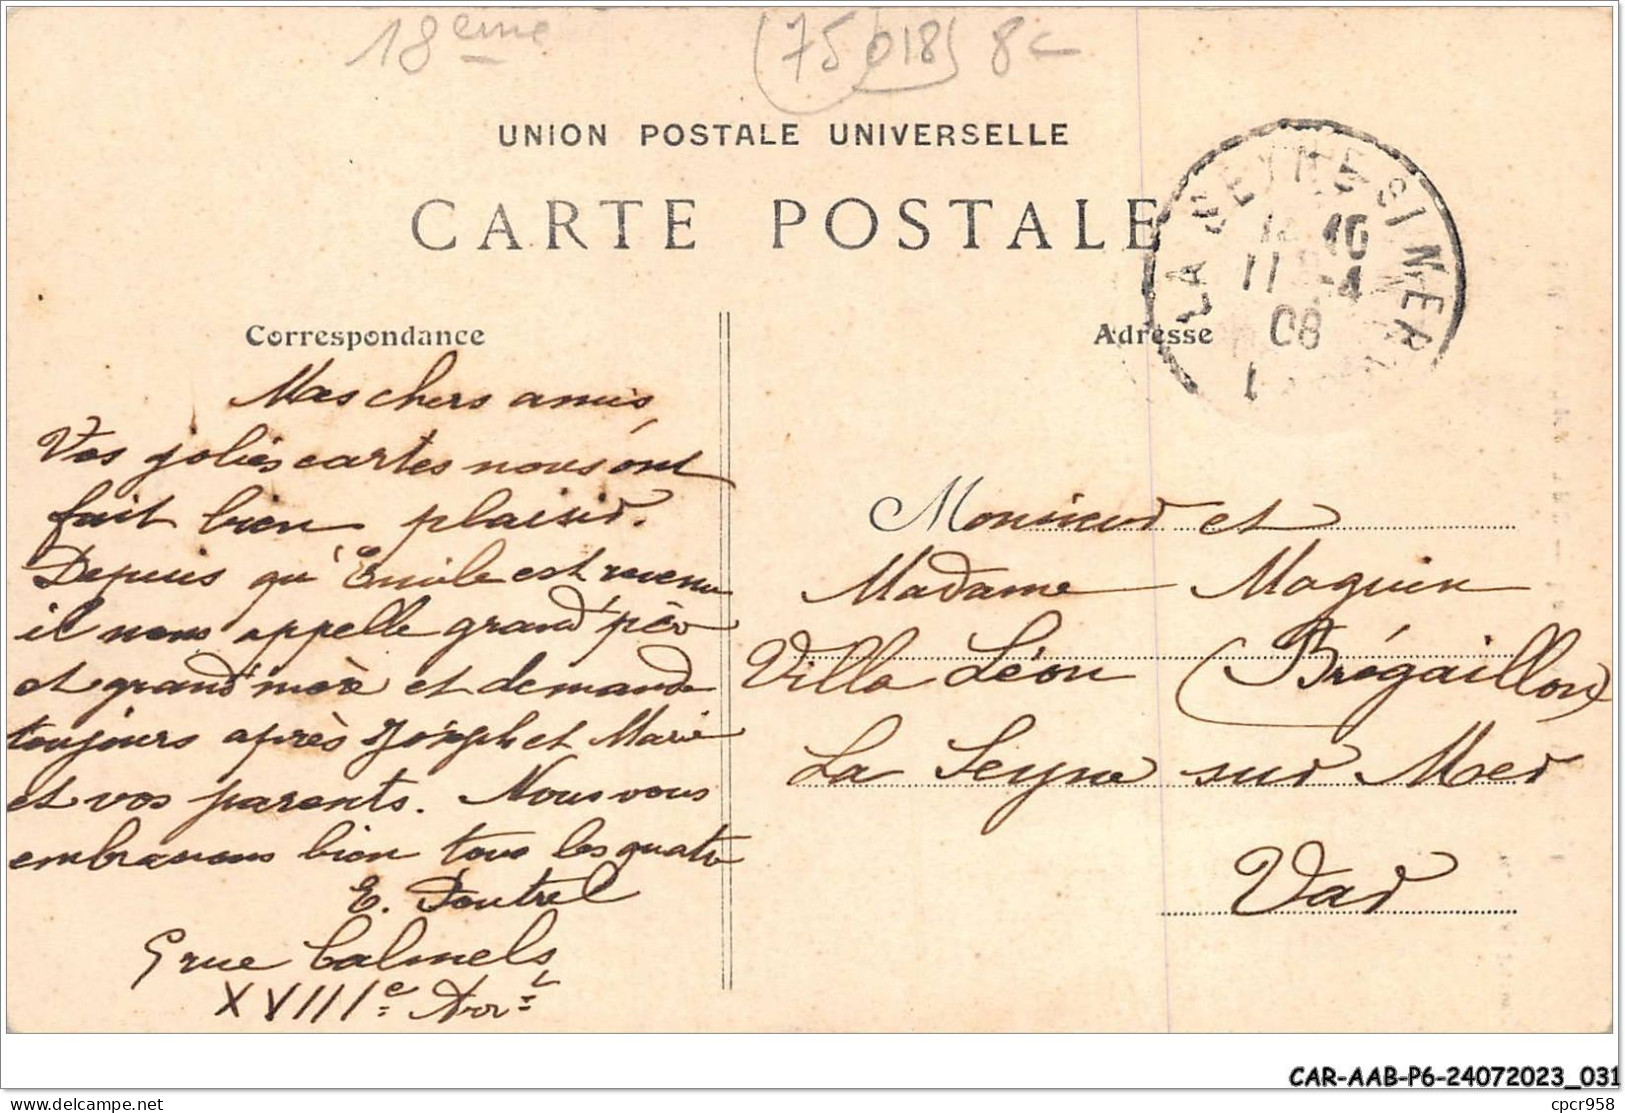 18ème (75018) 8c
UNION POSTALE UNIVERSELLE
CARTE POSTALE
LA SEYNE S/ MER
10
11 -4
08
Correspondance
Mes chers amis,
Vos jolies cartes nous ont
fait bien plaisir.
Depuis qu'Emile est revenu
il nous appelle grand'père
et grand'mère et demande
toujours après Joseph et Marie
et vos parents. Nous vous
embrassons bien tous les quatre
E. Doutrel
9 rue Calmels
XVIIIe Arrt
Adresse
Monsieur et
Madame Maguin
Villa Léon (Brégaillon)
La Seyne sur Mer
Var
CAR-AAB-P6-24072023_031
delcampe.net
cpcr958